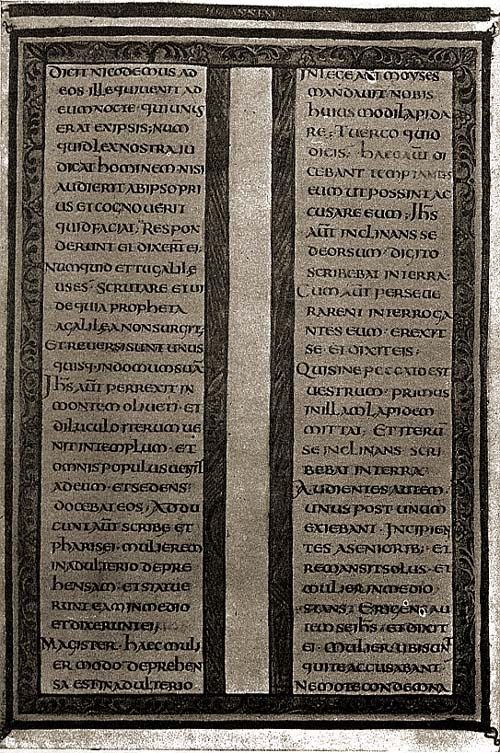 DICIT NICODEMUS AD
EOS ILLE QUI UENIT AD
EUM NOCTE · QUI UNUS
ERAT EX IPSIS; NUM
QUID LEX NOSTRA IU
DICAT hOMINEM NISI
AUDIERIT AB IPSO PRI
US ET COGNOUERIT
QUID FACIAT; RESPON
DERUNT ET DIXERT EI;
NUMQUID ET TU GALILE
US ES · SCRUTARE ET UI
DE QUIA PROPHETA
A GALILEA NON SURGIT;
ET REUERSI SUNT UNUS
QUISQ; IN DOMUM SUA
JhS AUT PERREXIT IN
MONTEM OLIUETI · ET
DILUCULO ITERUM UE
NIT IN TEMPLUM · ET
OMNIS POPULUS UENIT
AD EUM · ET SEDENS
DOCEBAT EOS; ADDU
CUNT AUT SCRIBE ET
PhARISEI · MULIEREM
IN ADULTERIO DEPRE
hENSAM · ET STATUE
RUNT EAM IN MEDIO
ET DIXERUNT EI;
MAGISTER · hAEC MULI
ER MODO DEPREhEN
SA EST IN ADULTERIO
IN LEGE AUT MOYSES
MANDAUIT NOBIS
hUIUSMODI LAPIDA
RE; TU ERGO QUID
DICIS · hAEC AUT DI
CEBANT TEMPTANTES
EUM UT POSSINT AC
CUSARE EUM; JhS
AUT INCLINANS SE
DEORSUM · DIGITO
SCRIBEBAT IN TERRA ·
CUM AUT PERSEUE
RARENT INTERROGA
NTES EUM · EREXIT
SE ET DIXIT EIS;
QUI SINE PECCATO EST
UESTRUM · PRIMUS
IN ILLAM LAPIDEM
MITTAT · ET ITERU
SE INCLINANS SCRI
BEBAT IN TERRA ·
AUDIENTES AUTEM ·
UNUS POST UNUM
EXIEBANT · INCIPIEN
TES A SENIORIB; · ET
REMANSIT SOLUS · ET
MULIER IN MEDIO
STANS; ERIGENS AU
TEM SE IhS · ET DIXIT
EI · MULIER UBI SUNT
QUI TE ACCUSABANT
NEMO TE CONDEMNA